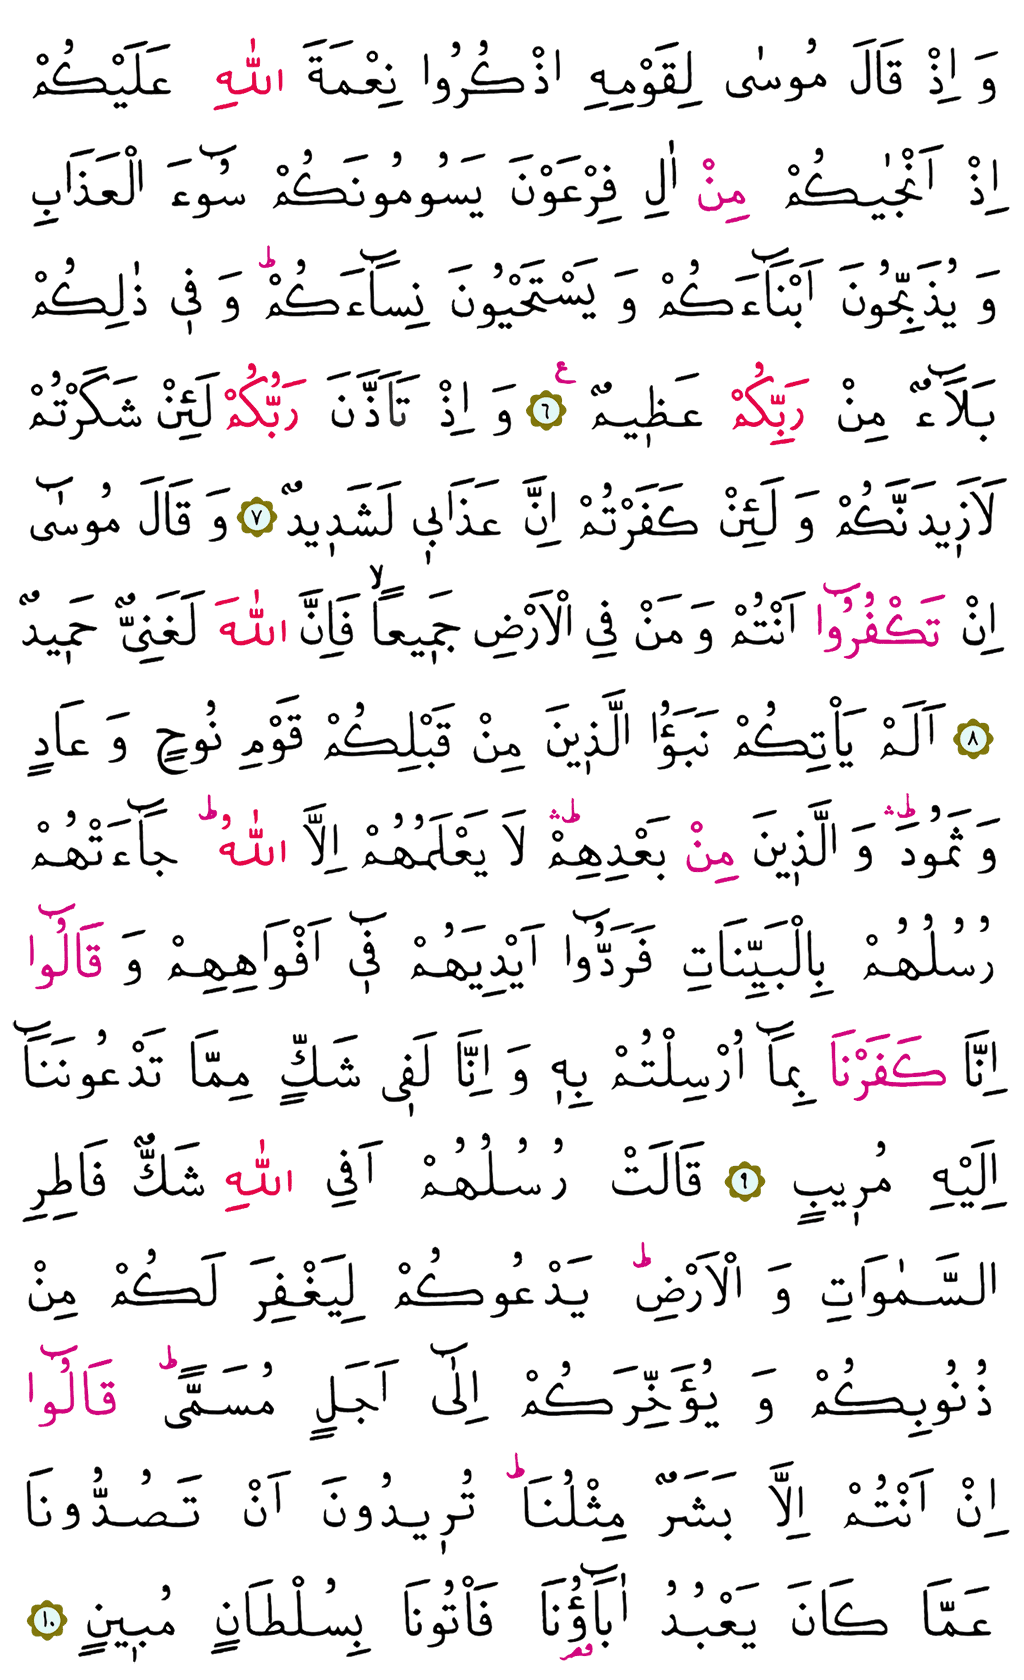 وَ اِذْ قَالَ مُوسٰى لِقَوْمِهِ اذْكُرُوا نِعْمَةَ اللّٰهِ عَلَيْكُمْ
اِذْ اَنْجٰيكُمْ مِنْ اٰلِ فِرْعَوْنَ يَسُومُونَكُمْ سُٓوءَ الْعَذَابِ
وَ يُذَبِّحُونَ اَبْنَٓاءَكُمْ وَ يَسْتَحْيُونَ نِسَٓاءَكُمْؕ وَ فٖي ذٰلِكُمْ
بَلَٓاءٌ مِنْ رَبِّكُمْ عَظٖيمٌ ﴿٦﴾ ع وَ اِذْ تَاَذَّنَ رَبُّكُمْ لَئِنْ شَكَرْتُمْ
لَاَزٖيدَنَّكُمْ وَ لَئِنْ كَفَرْتُمْ اِنَّ عَذَابٖي لَشَدٖيدٌ ﴿٧﴾ وَ قَالَ مُوسٰٓى
اِنْ تَكْفُرُٓوا اَنْتُمْ وَ مَنْ فِي الْاَرْضِ جَمٖيعاًۙ فَاِنَّ اللّٰهَ لَغَنِيٌّ حَمٖيدٌ
﴿٨﴾ اَلَمْ يَاْتِكُمْ نَبَؤُا الَّذٖينَ مِنْ قَبْلِكُمْ قَوْمِ نُوحٍ وَ عَادٍ
وَ ثَمُودَؕۛ وَ الَّذٖينَ مِنْ بَعْدِهِمْؕۛ لَا يَعْلَمُهُمْ اِلَّا اللّٰهُؕ جَٓاءَتْهُمْ
رُسُلُهُمْ بِالْبَيِّنَاتِ فَرَدُّٓوا اَيْدِيَهُمْ فٖٓي اَفْوَاهِهِمْ وَ قَالُٓوا
اِنَّا كَفَرْنَا بِمَٓا اُرْسِلْتُمْ بِهٖ وَ اِنَّا لَفٖي شَكٍّ مِمَّا تَدْعُونَنَٓا
اِلَيْهِ مُرٖيبٍ ﴿٩﴾ قَالَتْ رُسُلُهُمْ اَفِي اللّٰهِ شَكٌّ فَاطِرِ
السَّمٰوَاتِ وَ الْاَرْضِؕ يَدْعُوكُمْ لِيَغْفِرَ لَكُمْ مِنْ
ذُنُوبِكُمْ وَ يُؤَخِّرَكُمْ اِلٰٓى اَجَلٍ مُسَمًّىؕ قَالُٓوا
اِنْ اَنْتُمْ اِلَّا بَشَرٌ مِثْلُنَاؕ تُرٖيدُونَ اَنْ تَصُدُّونَا
عَمَّا كَانَ يَعْبُدُ اٰبَٓاؤُ۬نَا فَاْتُونَا بِسُلْطَانٍ مُبٖينٍ ﴿١٠﴾